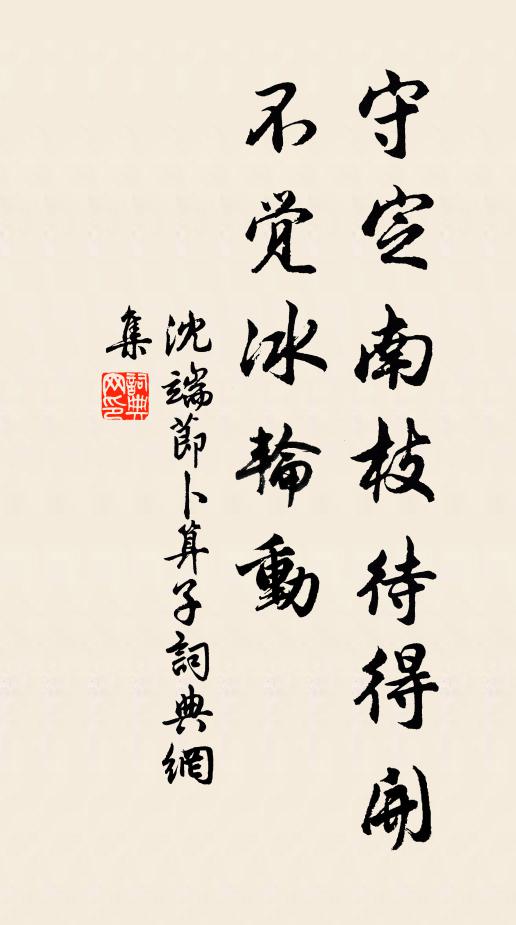 守定南枝待得開
不覚冰輪動
沈端節卜算子詞典網
集
詞典
网印